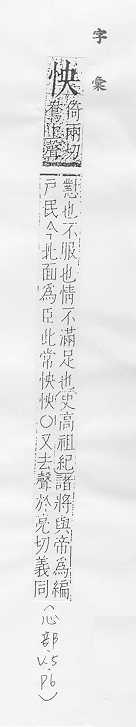 字彙
怏
倚兩切
鴦上聲
懟也不服也情不滿足也史高祖紀諸將與帝為編
戶民今北面為臣此常怏怏○又去聲於亮切義同
(心部.V.5.P6)